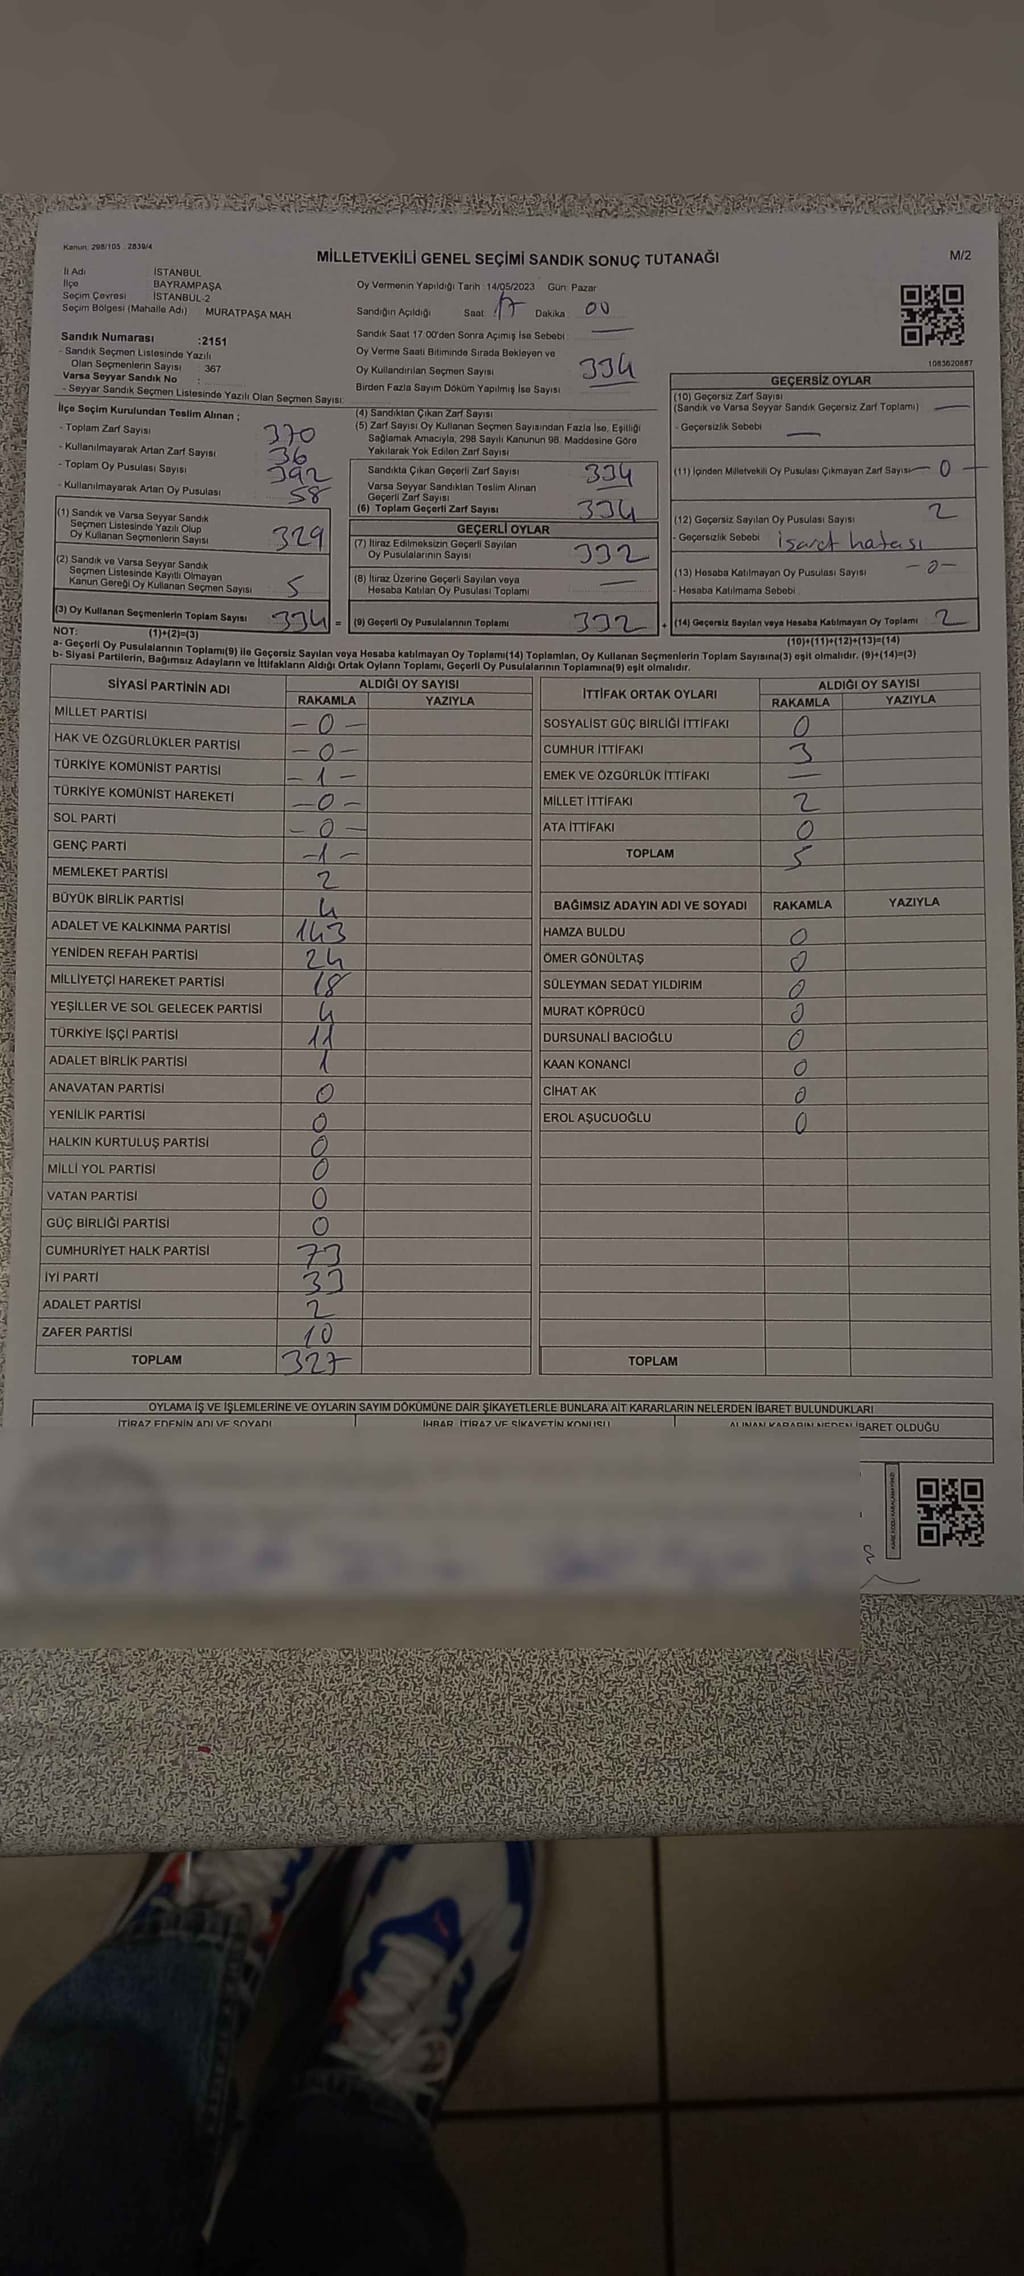 Kanun: 298/105 . 2839/4
MİLLETVEKİLİ GENEL SEÇİMİ SANDIK SONUÇ TUTANAĞI
M/2
İl Adı İSTANBUL
İlçe BAYRAMPAŞA
Seçim Çevresi İSTANBUL-2
Seçim Bölgesi (Mahalle Adı) MURATPAŞA MAH
Sandık Numarası :2151
- Sandık Seçmen Listesinde Yazılı
Olan Seçmenlerin Sayısı : 367
Varsa Seyyar Sandık No :
- Seyyar Sandık Seçmen Listesinde Yazılı Olan Seçmen Sayısı:
Oy Vermenin Yapıldığı Tarih : 14/05/2023 Gün: Pazar
Sandığın Açıldığı Saat 17 Dakika 00
Sandık Saat 17:00'den Sonra Açımış İse Sebebi —
Oy Verme Saati Bitiminde Sırada Bekleyen ve
Oy Kullandırılan Seçmen Sayısı 334
Birden Fazla Sayım Döküm Yapılmış İse Sayısı
1083620887
İlçe Seçim Kurulundan Teslim Alınan ;
- Toplam Zarf Sayısı 370
- Kullanılmayarak Artan Zarf Sayısı 36
- Toplam Oy Pusulası Sayısı 392
- Kullanılmayarak Artan Oy Pusulası 58
(1) Sandık ve Varsa Seyyar Sandık
Seçmen Listesinde Yazılı Olup
Oy Kullanan Seçmenlerin Sayısı 329
(2) Sandık ve Varsa Seyyar Sandık
Seçmen Listesinde Kayıtlı Olmayan
Kanun Gereği Oy Kullanan Seçmen Sayısı 5
(3) Oy Kullanan Seçmenlerin Toplam Sayısı 334 =
(1)+(2)=(3)
(4) Sandıktan Çıkan Zarf Sayısı
(5) Zarf Sayısı Oy Kullanan Seçmen Sayısından Fazla İse, Eşitliği
Sağlamak Amacıyla, 298 Sayılı Kanunun 98. Maddesine Göre
Yakılarak Yok Edilen Zarf Sayısı
Sandıkta Çıkan Geçerli Zarf Sayısı 334
Varsa Seyyar Sandıktan Teslim Alınan
Geçerli Zarf Sayısı
(6) Toplam Geçerli Zarf Sayısı 334
GEÇERLİ OYLAR
(7) İtiraz Edilmeksizin Geçerli Sayılan
Oy Pusulalarının Sayısı 332
(8) İtiraz Üzerine Geçerli Sayılan veya
Hesaba Katılan Oy Pusulası Toplamı —
(9) Geçerli Oy Pusulalarının Toplamı 332 +
GEÇERSİZ OYLAR
(10) Geçersiz Zarf Sayısı
(Sandık ve Varsa Seyyar Sandık Geçersiz Zarf Toplamı) —
- Geçersizlik Sebebi —
(11) İçinden Milletvekili Oy Pusulası Çıkmayan Zarf Sayısı — 0 —
(12) Geçersiz Sayılan Oy Pusulası Sayısı 2
- Geçersizlik Sebebi işaret hatası
(13) Hesaba Katılmayan Oy Pusulası Sayısı -0-
- Hesaba Katılmama Sebebi
(14) Geçersiz Sayılan veya Hesaba Katılmayan Oy Toplamı 2
(10)+(11)+(12)+(13)=(14)
NOT:
a- Geçerli Oy Pusulalarının Toplamı(9) ile Geçersiz Sayılan veya Hesaba katılmayan Oy Toplamı(14) Toplamları, Oy Kullanan Seçmenlerin Toplam Sayısına(3) eşit olmalıdır. (9)+(14)=(3)
b- Siyasi Partilerin, Bağımsız Adayların ve İttifakların Aldığı Ortak Oyların Toplamı, Geçerli Oy Pusulalarının Toplamına(9) eşit olmalıdır.
SİYASİ PARTİNİN ADI ALDIĞI OY SAYISI
RAKAMLA YAZIYLA
MİLLET PARTİSİ - 0 -
HAK VE ÖZGÜRLÜKLER PARTİSİ - 0 -
TÜRKİYE KOMÜNİST PARTİSİ - 1 -
TÜRKİYE KOMÜNİST HAREKETİ - 0 -
SOL PARTİ - 0 -
GENÇ PARTİ - 1 -
MEMLEKET PARTİSİ 2
BÜYÜK BİRLİK PARTİSİ 4
ADALET VE KALKINMA PARTİSİ 143
YENİDEN REFAH PARTİSİ 24
MİLLİYETÇİ HAREKET PARTİSİ 18
YEŞİLLER VE SOL GELECEK PARTİSİ 4
TÜRKİYE İŞÇİ PARTİSİ 11
ADALET BİRLİK PARTİSİ 1
ANAVATAN PARTİSİ 0
YENİLİK PARTİSİ 0
HALKIN KURTULUŞ PARTİSİ 0
MİLLİ YOL PARTİSİ 0
VATAN PARTİSİ 0
GÜÇ BİRLİĞİ PARTİSİ 0
CUMHURİYET HALK PARTİSİ 73
İYİ PARTİ 33
ADALET PARTİSİ 2
ZAFER PARTİSİ 10
TOPLAM 327
İTTİFAK ORTAK OYLARI ALDIĞI OY SAYISI
RAKAMLA YAZIYLA
SOSYALİST GÜÇ BİRLİĞİ İTTİFAKI 0
CUMHUR İTTİFAKI 3
EMEK VE ÖZGÜRLÜK İTTİFAKI —
MİLLET İTTİFAKI 2
ATA İTTİFAKI 0
TOPLAM 5
BAĞIMSIZ ADAYIN ADI VE SOYADI RAKAMLA YAZIYLA
HAMZA BULDU 0
ÖMER GÖNÜLTAŞ 0
SÜLEYMAN SEDAT YILDIRIM 0
MURAT KÖPRÜCÜ 0
DURSUNALİ BACIOĞLU 0
KAAN KONANCİ 0
CİHAT AK 0
EROL AŞUCUOĞLU 0
TOPLAM
OYLAMA İŞ VE İŞLEMLERİNE VE OYLARIN SAYIM DÖKÜMÜNE DAİR ŞİKAYETLERLE BUNLARA AİT KARARLARIN NELERDEN İBARET BULUNDUKLARI
İTİRAZ EDENİN ADI VE SOYADI İHBAR, İTİRAZ VE ŞİKAYETİN KONUSU ALINAN KARARIN NEDEN İBARET OLDUĞU